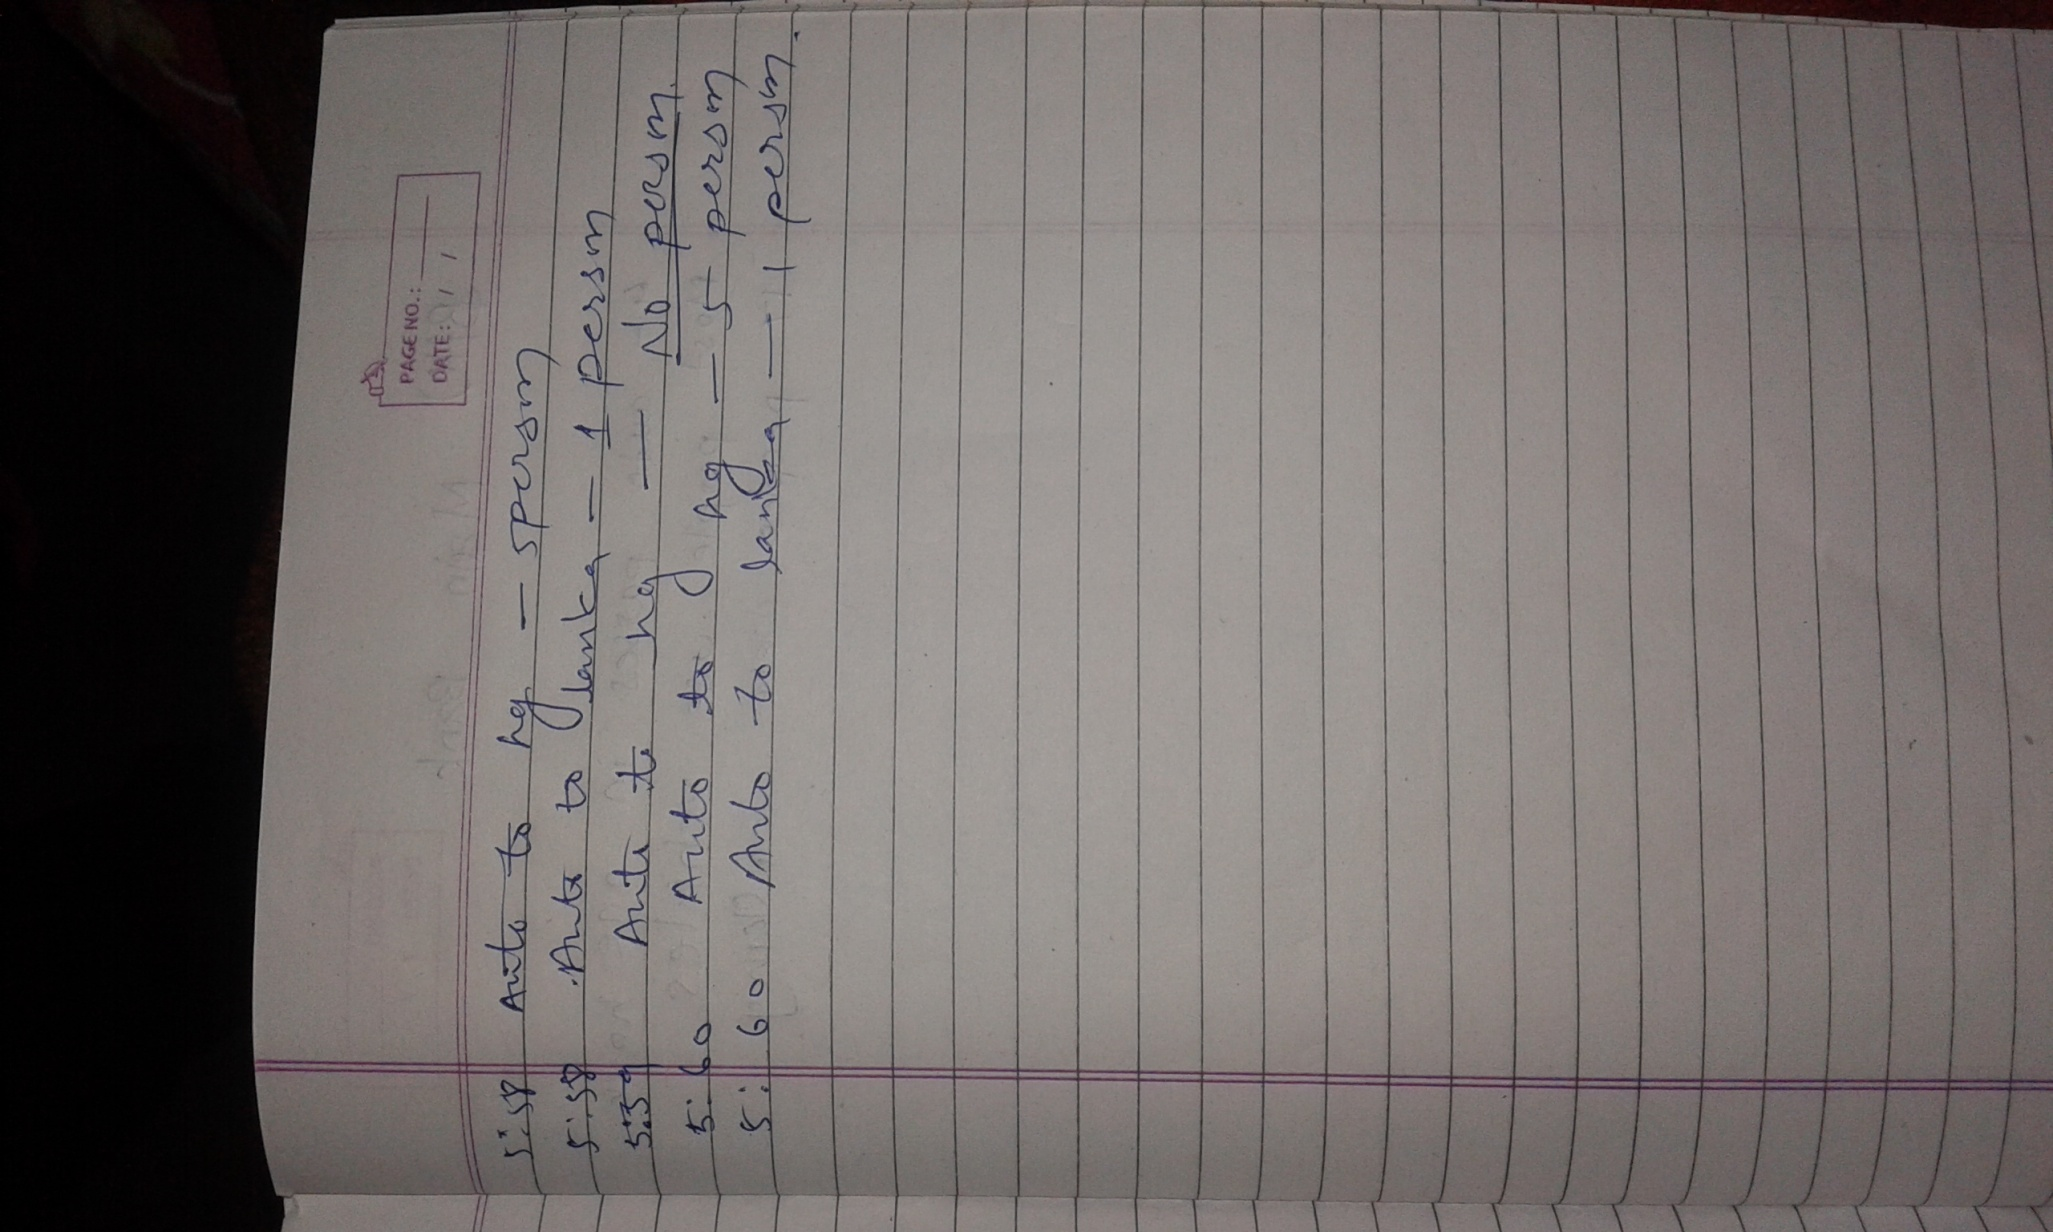 PAGE NO.:
DATE:
5:58 Auto to hg - 5 person
5:58 Auto to lanka - 1 person
5:59 Auto to hg - No person.
5:60 Auto to hg - 5 person
5:60 Auto to lanka - 1 person.